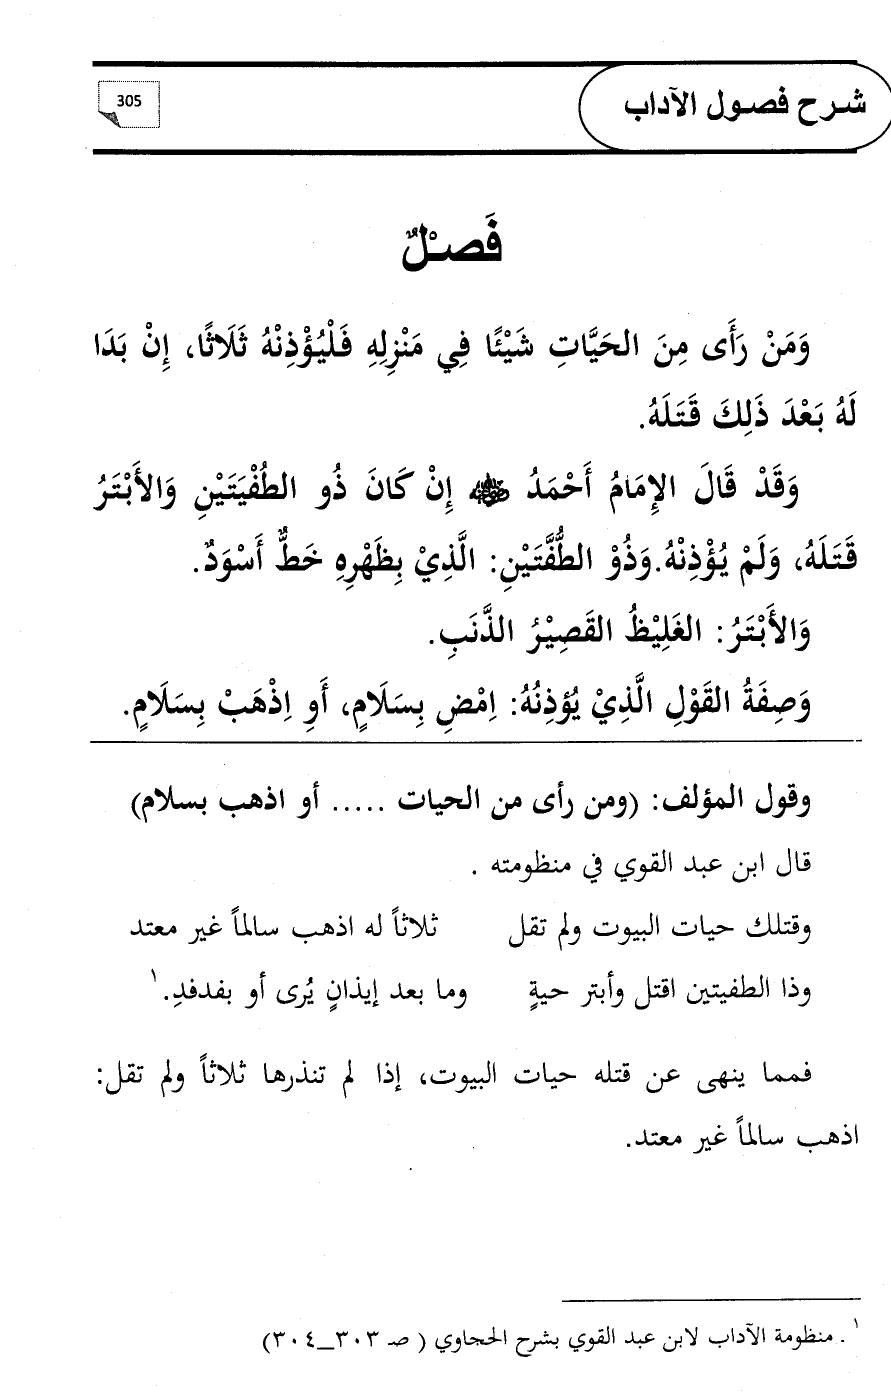 شرح فصول الآداب
305
فَصْلٌ
وَمَنْ رَأَى مِنَ الحَيَّاتِ شَيْئًا فِي مَنْزِلِهِ فَلْيُؤْذِنْهُ ثَلَاثًا، إِنْ بَدَا
لَهُ بَعْدَ ذَلِكَ قَتَلَهُ.
وَقَدْ قَالَ الإِمَامُ أَحْمَدُ إِنْ كَانَ ذُو الطُفْيَتَيْنِ وَالأَبْتَرُ
قَتَلَهُ، وَلَمْ يُؤْذِنْهُ.وَذُوْ الطُّفَّتَيْنِ: الَّذِيْ بِظَهْرِهِ خَطٌّ أَسْوَدٌ.
وَالأَبْتَرُ: الغَلِيْظُ القَصِيْرُ الذَّنَبِ.
وَصِفَةُ القَوْلِ الَّذِيْ يُؤذِنُهُ: اِمْضِ بِسَلَامٍ، أَوِ اِذْهَبْ بِسَلَامٍ.
وقول المؤلف: (ومن رأى من الحيات ..... أو اذهب بسلام)
قال ابن عبد القوي في منظومته .
وقتلك حيات البيوت ولم تقل ثلاثاً له اذهب سالماً غير معتد
وذا الطفيتين اقتل وأبتر حيةٍ وما بعد إيذانٍ يُرى أو بفدفدِ.١
فمما ينهى عن قتله حيات البيوت، إذا لم تنذرها ثلاثاً ولم تقل:
اذهب سالماً غير معتد.
١ . منظومة الآداب لابن عبد القوي بشرح الحجاوي ( صـ ٣٠٣_٣٠٤)